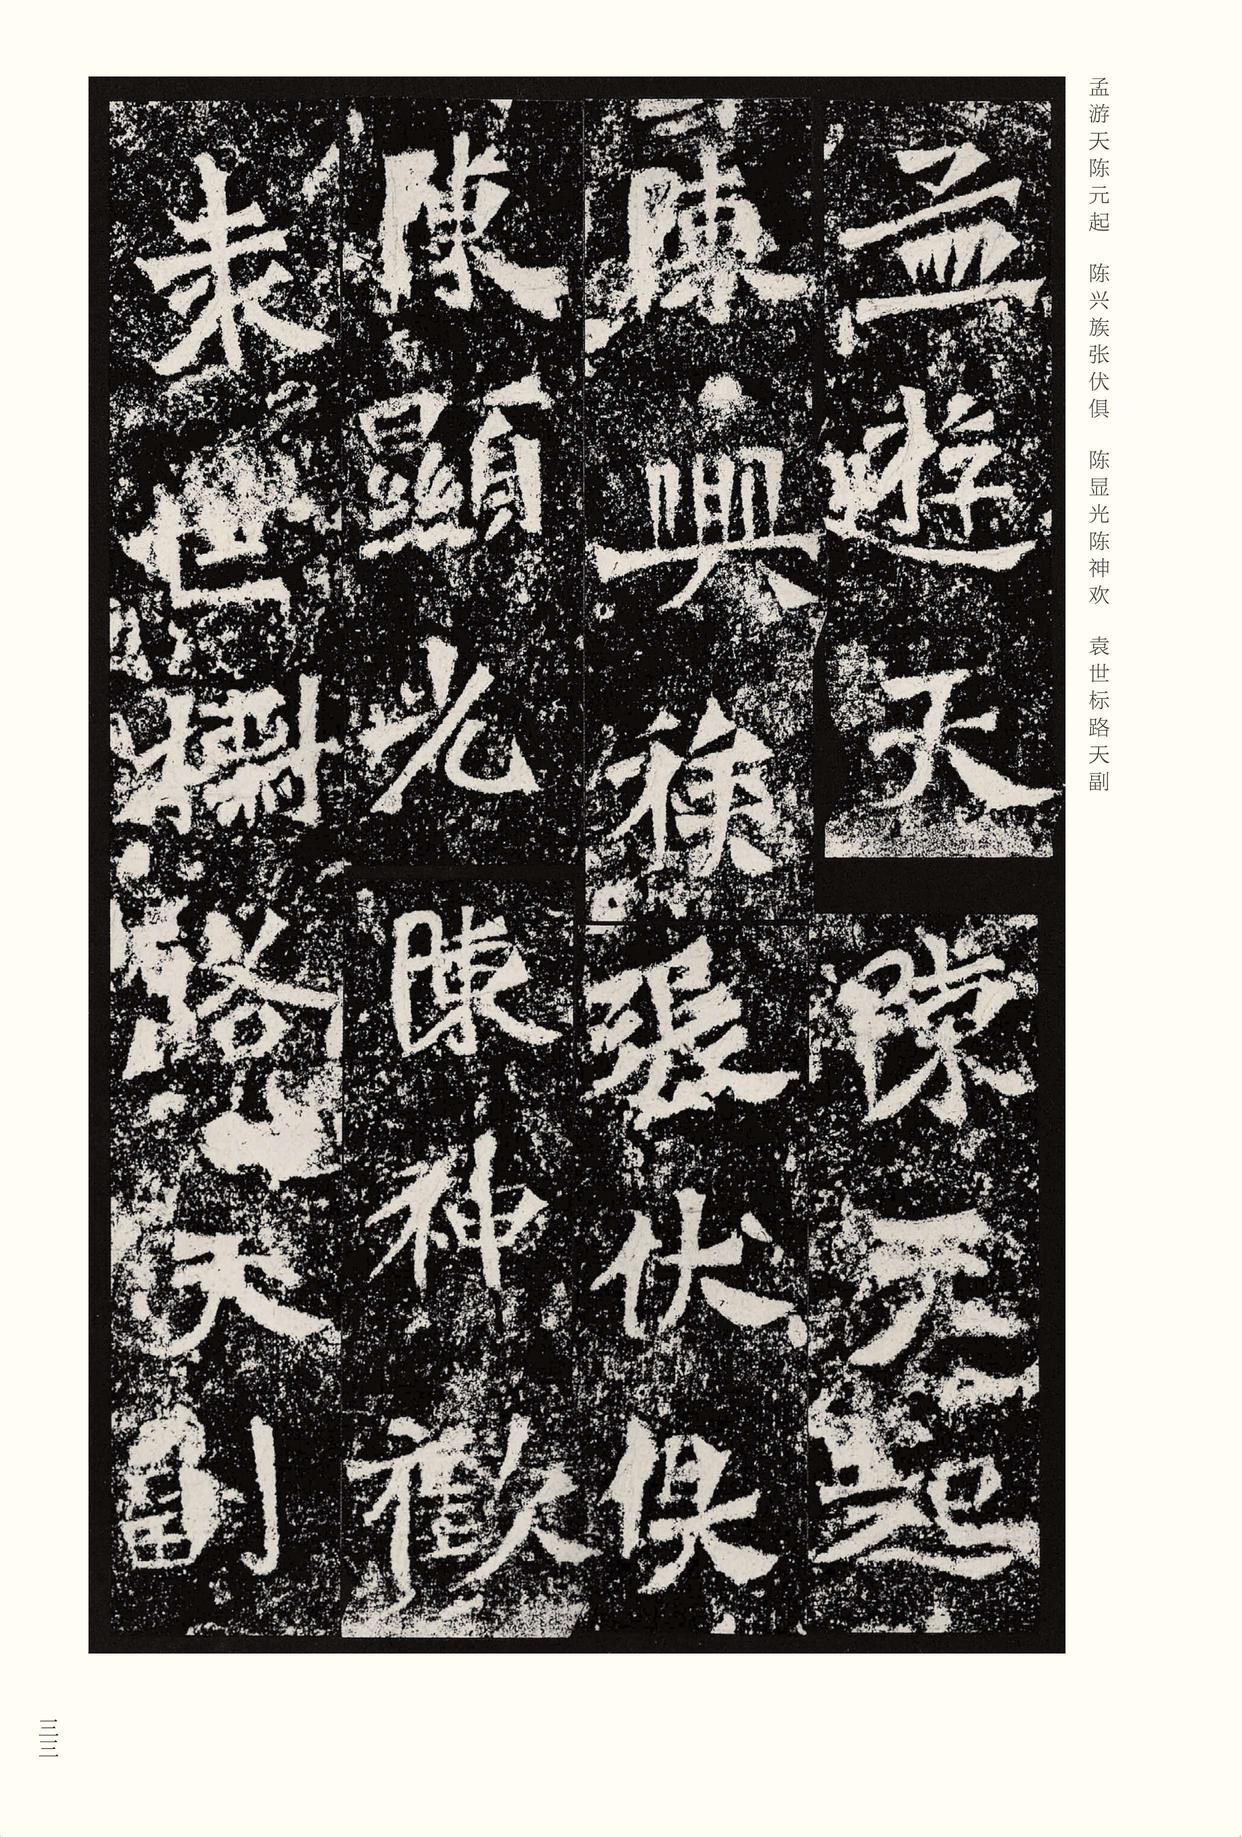 孟游天陈元起　陈兴族张伏俱　陈显光陈神欢　袁世标路天副
孟遊天陳元起
陳興族張伏俱
陳顯光陳神歡
世標路天副
三三